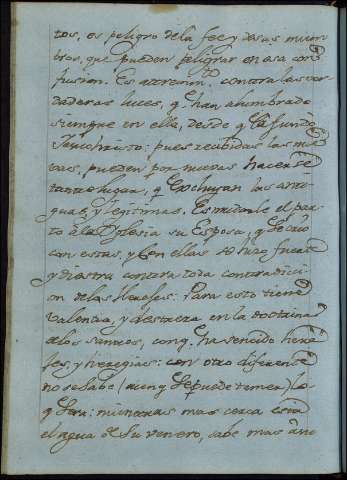 tos, es peligro de la fee, y de sus miem
bros, que pueden peligrar en esa con
fusion. Es atrevim.to contra las ver
daderas luces, q han alumbrado
siempre en ella, desde q la fundo
Jesuchristo: pues recibidas las nue
vas, pueden por nuevas hacerse
tanto lugar, q excluyan las anti
guas, y legitimas. Es quitarle el
to a la Iglesia su Esposa, q le crio
con estas, y con ellas se hizo fuerte
y diestra contra toda contradici
on de las Herejes: Para esto tiene
valentia, y destreza en la doctrina
de los santos, con q ha vencido here
jes, y heregias: con otro diferente
no se sabe (aunq se puede temer) lo
q sera: mientras mas cerca està
el agua de su venero, sabe mas a